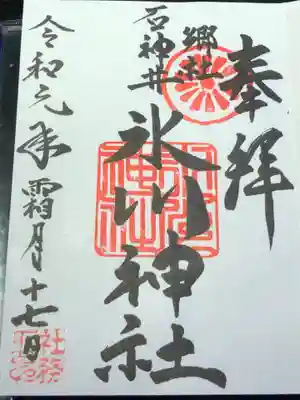 奉拝
郷社
石神井
氷川神社
令和元年霜月十七日
社務